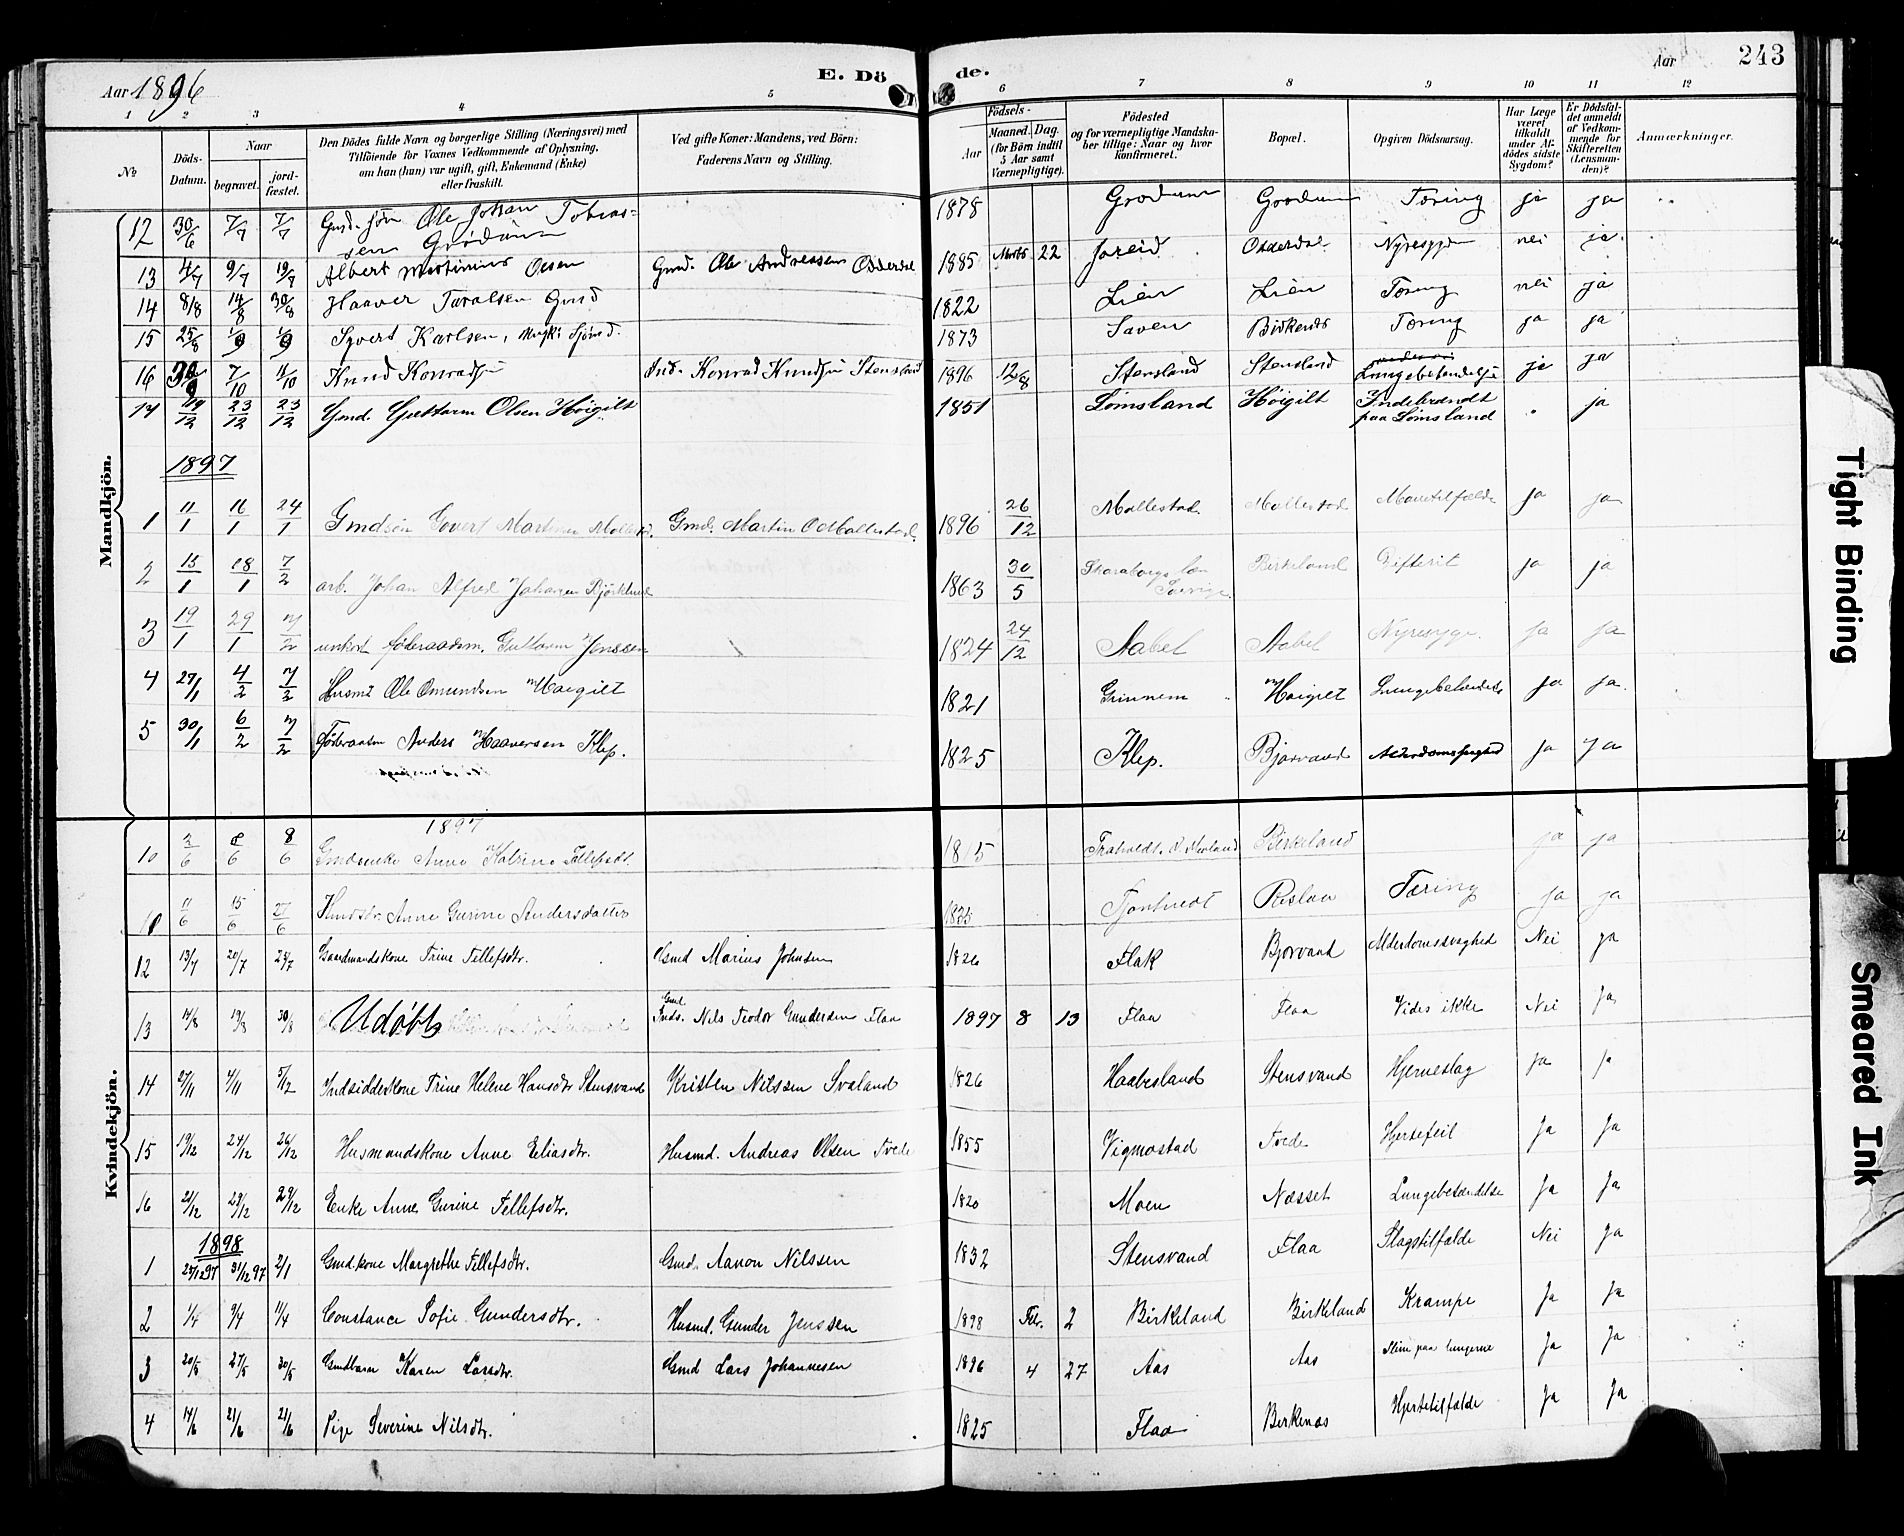 Aar 1896
E. Döde.
Aar
243
1 2 3 4 5 6 7 8 9 10 11 12
No
Döds-Datum.
Naar
begravet.
jordfæstet.
Den Dödes fulde Navn og borgerlige Stilling (Næringsvei) med
Tilföiende for Voxnes Vedkommende af Oplysning,
om han (hun) var ugift, gift, Enkemand (Enke)
eller fraskilt.
Ved gifte Koner: Mandens, ved Börn:
Faderens Navn og Stilling.
Födsels-
Aar
Maaned. Dag.
(for Börn indtil
5 Aar samt
Værnepligtige).
Födested
og for værnepligtige Mandska-
ber tillige: Naar og hvor
konfirmeret.
Bopæl.
Opgiven Dödsaarsag.
Har Læge
været
tilkaldt
under Af-
dödes sidste
Sygdom?
Er Dödsfal-
det anmeldt
af Vedkom-
mende for
Skifteretten
(Lensman-
den)?
Anmærkninger.
Mandkjön.
12 30/6 7/7 7/7 Gmd. sön Ole Johan Tobias-
sen 1878 Tæring ja ja
13 4/7 9/7 19/7 Albert Martinius Olsen Gmd. Ole Andreassen Odderdal 1885 22 Joreid Odderdal Nyresygdom nei ja
14 8/8 14/8 30/8 Haaver Taralsen Gmd 1822 Lien Lien Tæring nei ja
15 25/8 1/9 1/9 Syvert Karlsen, Sjömd. 1873 Saven Birkenes Tæring ja ja
16 30/9 7/10 11/10 Knud Konradsen Ind. Konrad Knudsen Stensland 1896 12/8 Stensland Stensland Lungebetændelse ja ja
17 19/12 23/12 23/12 Gmd. Guttorm Olsen Höigilt 1851 Lömsland Höigilt Indebrændt
paa Lömsland ja
1897
1 11/1 16/1 24/1 Gmdsön Govert Martinsen Mollestad Gmd. Martin O Mollestad. 1896 26/12 Mollestad Mollestad Mavetilfælde ja ja
2 15/1 18/1 7/2 arb. Johan Alfred Johansen Björklund 1863 30/5 Skaraborgs læn
Sverige. Birkeland ja ja
3 19/1 29/1 7/2 Föderaadsm. Guttorm Jenssen 1824 24/12 Aabel Aabel Nyresyge. ja ja
4 27/1 4/2 7/2 Husmd Ole Omundsen Höigilt 1821 Grimnem Höigilt Lungebetændelse ja ja.
5 30/1 6/2 7/2 Föderaadsm Anders Haaversen Klep. 1825 Klep. Bjorvand Alderdomssvaghed ja ja
Kvindekjön.
1897
10 2/6 8/6 8/6 Gmdenke Anne Katrine Tellefsdt. 1815 Birkeland ja ja
11/6 15/6 27/6 Anne Gurine Andersdatter Risløa Tæring ja ja
12 13/7 20/7 24/7 Gaardmandskone Trine Tellefsdtr. Gmd Marius Johnsen 1826 Flak Bjorvand Alderdomssvaghed Nei ja
13 14/8 19/8 30/8 Udøbt Gmd.
Inds. Nils Teodor Gundersen Flaa 1897 8 13 Flaa Flaa Vides ikke Nei Ja
14 27/11 4/11 5/12 Indsidderskone Trine Helene Hansdtr Stensvand Kristen Nilssen Svaland 1826 Haabesland Stensvand Hjerneslag Ja Ja
15 19/12 24/12 26/12 Husmandskone Anne Eliasdtr. Husmd. Andreas Olsen Tvede 1855 Vigmostad Tvede Hjertefeil Ja Ja
16 21/12 29/12 29/12 Enke Anne Gurine Tellefsdtr. 1820 Moen Næsset Lungebetændelse Ja Ja
1898
1 25/12 97 31/12 97 2/1 Gmd.kone Margrethe Tellefsdtr. Gmd. Aanon Nilssen 1832 Stensvand Flaa Slagtilfælde Nei ja
2 1/4 9/4 11/4 Constance Sofie Gundersdtr. Husmd. Gunder Jenssen 1898 Febr. 2 Birkeland Birkeland Krampe Ja Ja
3 20/5 27/5 30/5 Gmdbarn Karen Larsdtr. Gmd Lars Johannesen 1896 4 27 Aas Aas Slim paa lungerne Ja Ja
4 14/6 21/6 21/6 Pige Severine Nilsdtr. 1825 Flaa Birkenæs Hjertetilfælde Ja Ja
Tight Binding
Smeared Ink